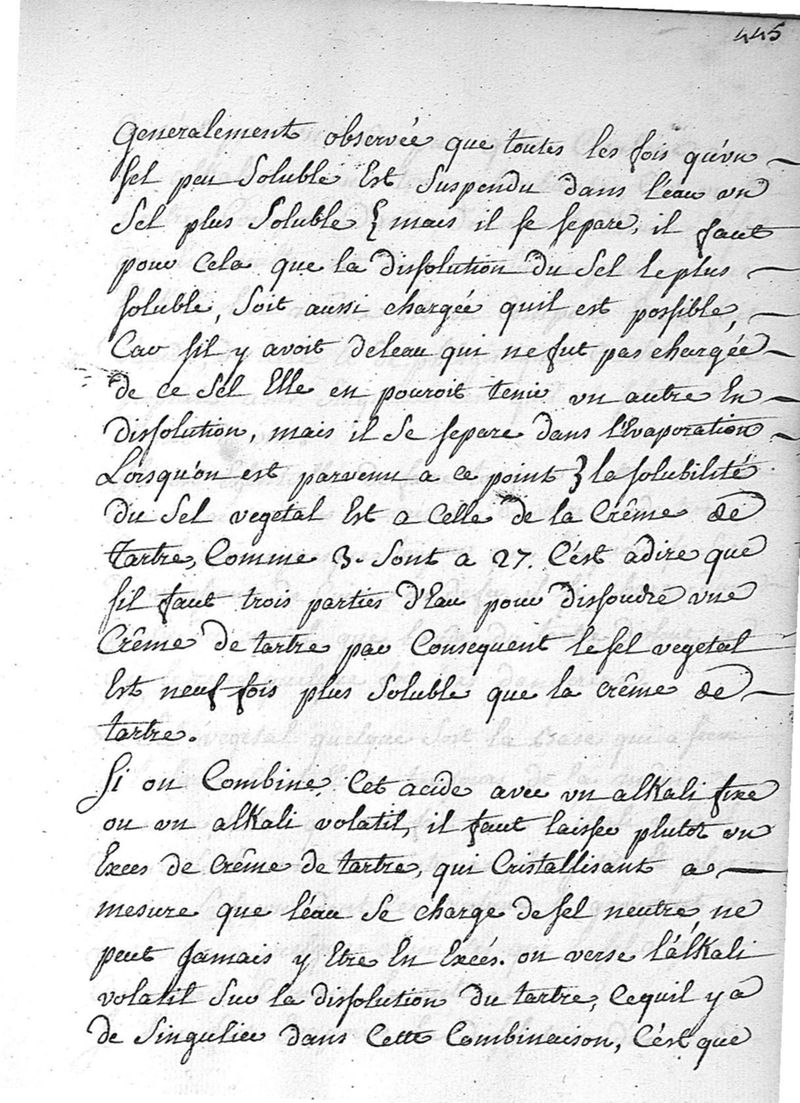 445
Generalement observée que toutes les fois qu'vn
sel peu Soluble Est Suspendu dans l'éau vn
Sel plus Soluble { mais il se separe, il faut
pour Cela que la dissolution du Sel le plus
soluble, Soit aussi chargée quil est possible,
Car sil y avoit deleau qui ne fut pas chargée
de ce Sel Elle en pouroit tenir vn autre En
Dissolution, mais il Se separe dans l'Evaporation
Lorsqu'on est parvenu a ce point } la solubilité
du Sel vegetal Est a Celle de la Crême de
Tartre, Comme 3. Sont a 27. C'est adire que
sil faut trois parties d'Eau pour dissoudre vne
Crême de tartre par Consequent le sel vegetal
Est neuf fois plus Soluble que la crême de
tartre.
Si on Combine Cet acide avec vn alKali fixe
ou vn alKali volatil, il faut laisser plutot vn
Exces de Crême de tartre, qui Cristallisant a
mesure que l'éau Se charge de sel neutre, ne
peut Jamais y Etre En Excés. on verse l'álKali
volatil Sur la dissolution du tartre, Cequil y a
de Singulier dans Cette Combinaison, C'est que